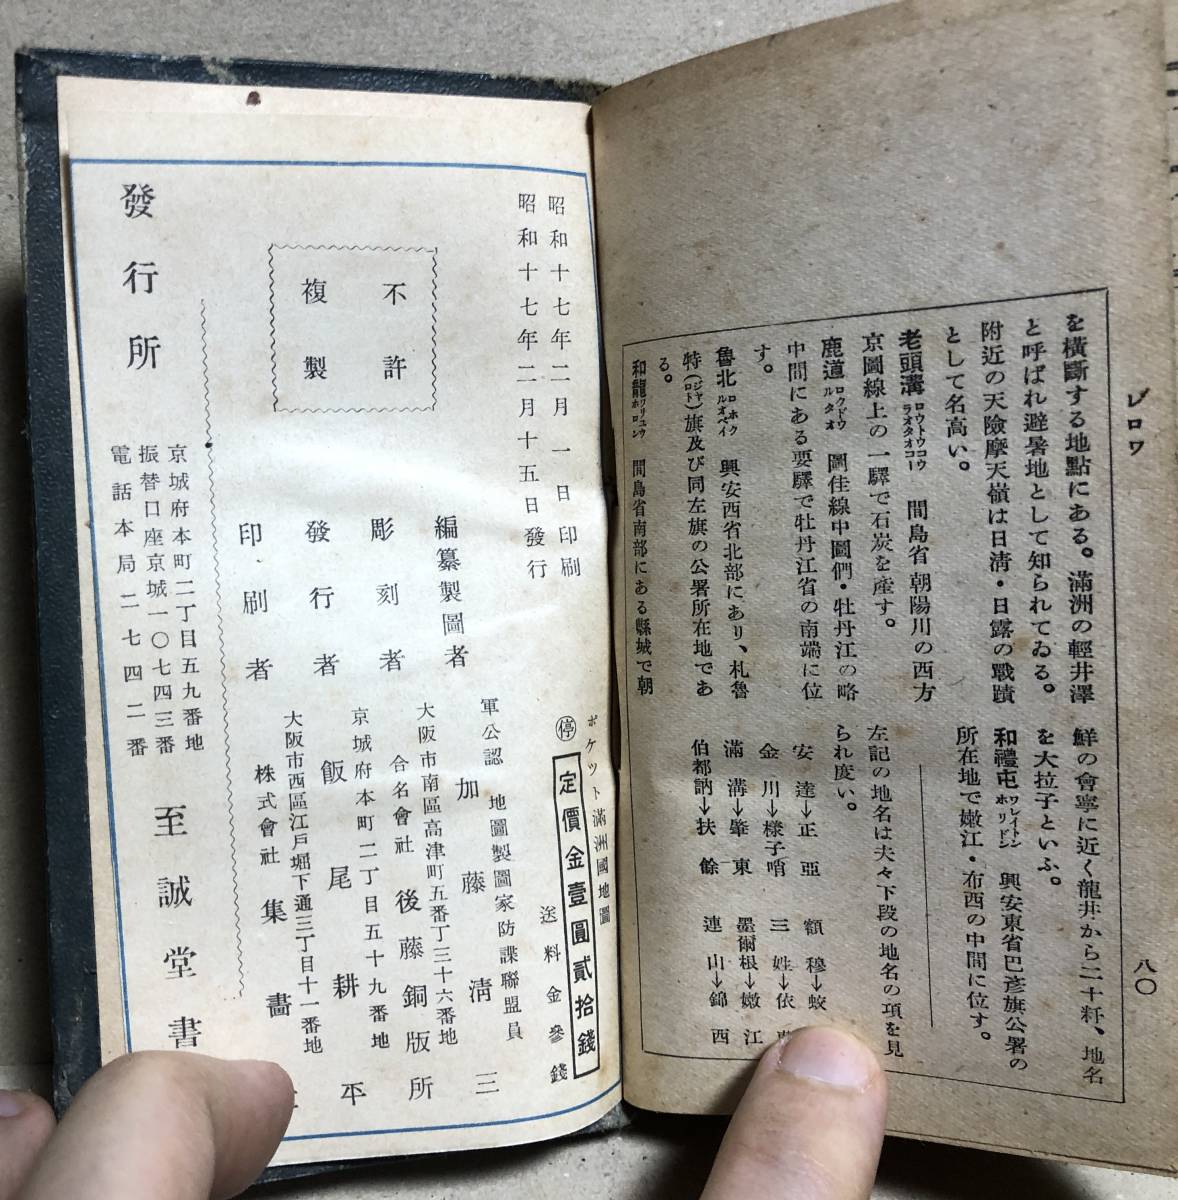 レロワ
八〇
を橫斷する地點にある。滿洲の輕井澤
と呼ばれ避暑地として知られてゐる。
附近の天險摩天嶺は日淸・日露の戰蹟
として名高い。
老頭溝 ロウトウコウ ラオタオコー 間島省朝陽川の西方
京圖線上の一驛で石炭を產す。
鹿道 ロクドウ ルタオ 圖佳線中圖們・牡丹江の略
中間にある要驛で牡丹江省の南端に位
す。
魯北 ロホク ルオペイ 興安西省北部にあり、札魯
特(ジヤロト)旗及び同左旗の公署所在地であ
る。
和龍 ワリユウ ホロン 間島省南部にある縣城で朝
鮮の會寧に近く龍井から二十粁、地名
を大拉子といふ。
和禮屯 ワレイトン ホリドン 興安東省巴彥旗公署の
所在地で嫩江・布西の中間に位す。
左記の地名は夫々下段の地名の項を見
られ度い。
安達→正亞
金川→樣子哨
滿溝→肇東
伯都訥→扶餘
額穆→蛟
三姓→依
墨爾根→嫩江
連山→錦西
昭和十七年二月一日印刷
昭和十七年二月十五日發行
不許
複製
ポケット滿洲國地圖
停 定價金壹圓貳拾錢
送料金參錢
編纂製圖者 軍公認 地圖製圖家防諜聯盟員 加藤淸三
彫刻者 大阪市南區高津町五番丁三十六番地 合名會社 後藤銅版所
發行者 京城府本町二丁目五十九番地 飯尾耕平
印刷者 大阪市西區江戸堀下通三丁目十一番地 株式會社 集畫
京城府本町二丁目五九番地
振替口座京城一〇七四三番
電話本局二七四二番
發行所 至誠堂書